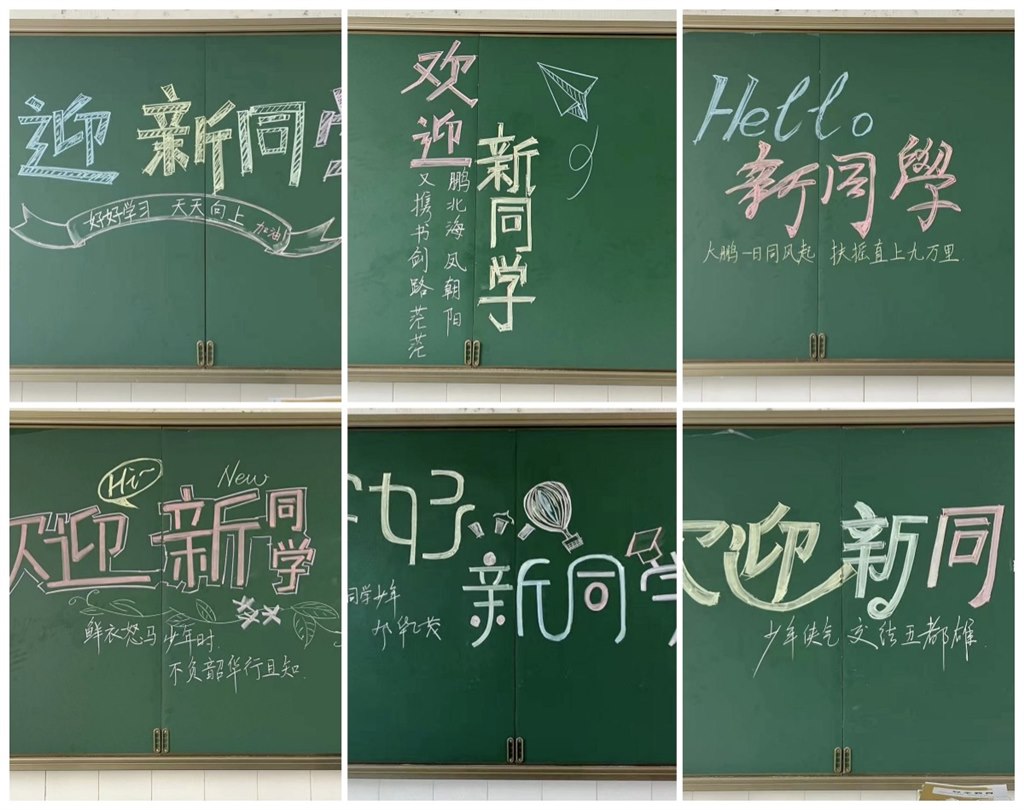 迎新同学
好好学习 天天向上 加油!
欢迎
新同学
鹏北海 凤朝阳
又携书剑路茫茫
Hello
新同學
大鹏一日同风起 扶摇直上九万里
Hi~
New
欢迎新同学
鲜衣怒马少年时
不负韶华行且知
好
新同学
同学少年
欢迎新同
少年侠气 交结五都雄